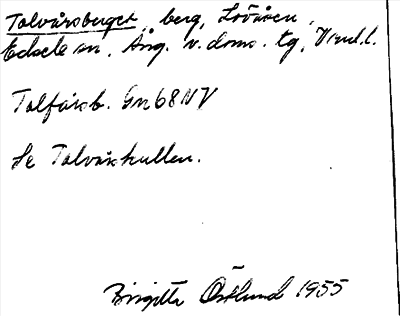 Talvåsberget, berg, Lövåsen,
Edsele sn, Ång. v. doms. tg, Vnrl. l.
Talfåsb. Gn 68 NV
Se Talvåskullen.
Birgitta Östlund 1955